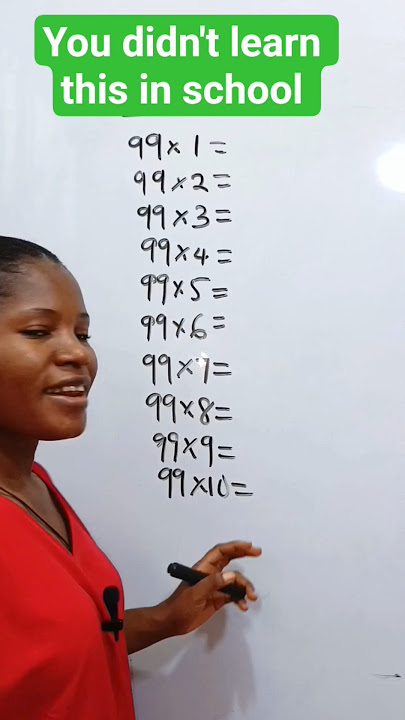 You didn't learn
this in school
99×1=
99×2=
99×3=
99×4=
99×5=
99×6=
99×7=
99×8=
99×9=
99×10=